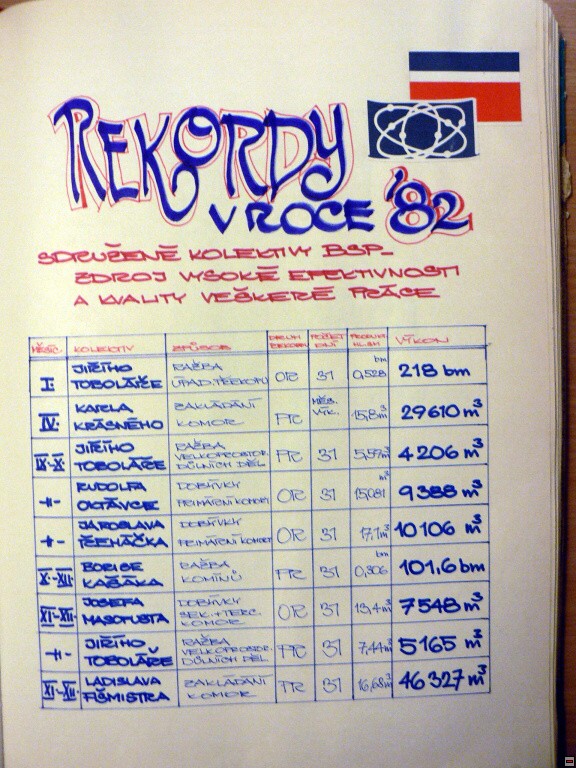 REKORDY
V ROCE '82
SDRUŽENÉ KOLEKTIVY BSP-
ZDROJ VYSOKÉ EFEKTIVNOSTI
A KVALITY VEŠKERÉ PRÁCE
MĚSÍC. KOLEKTIV ZPŮSOB DRUH REKORDU POČET DNÍ PRODUKT. HL.SM. VÝKON
I. JIŘÍHO TOBOLÁŘE RAŽBA OR 31 0,528 bm 218 bm
IV. KARLA KRÁSNÉHO ZAKLÁDÁNÍ KOMOR PR MĚS. VÝK. 15,8m³ 29610 m³
IX.-X. JIŘÍHO TOBOLÁŘE RAŽBA VELKOPROSTOR. DŮLNÍCH DĚL PR 31 4206 m³
-II- RUDOLFA OKTÁVCE DOBÝVKY PRIMÁRNÍ KOMORY OR 31 15,081 m³ 9388 m³
-II- JAROSLAVA ŘEHÁČKA DOBÝVKY PRIMÁRNÍ KOMOR OR 31 17,1m³ 10106 m³
X.-XII. BORISE KAŠÁKA RAŽBA KOMÍNŮ PR 31 0,306 bm 101,6 bm
XI.-XII. JOSEFA MASOPUSTA DOBÝVKY SEK.+TERC. KOMOR OR 31 13,4m³ 7548 m³
-II- JIŘÍHO TOBOLÁŘE RAŽBA VELKOPROSTOR. DŮLNÍCH DĚL PR 31 7,44m³ 5165 m³
XI.-XII. LADISLAVA FIŠMISTRA ZAKLÁDÁNÍ KOMOR PR 31 16,68m³ 46327 m³